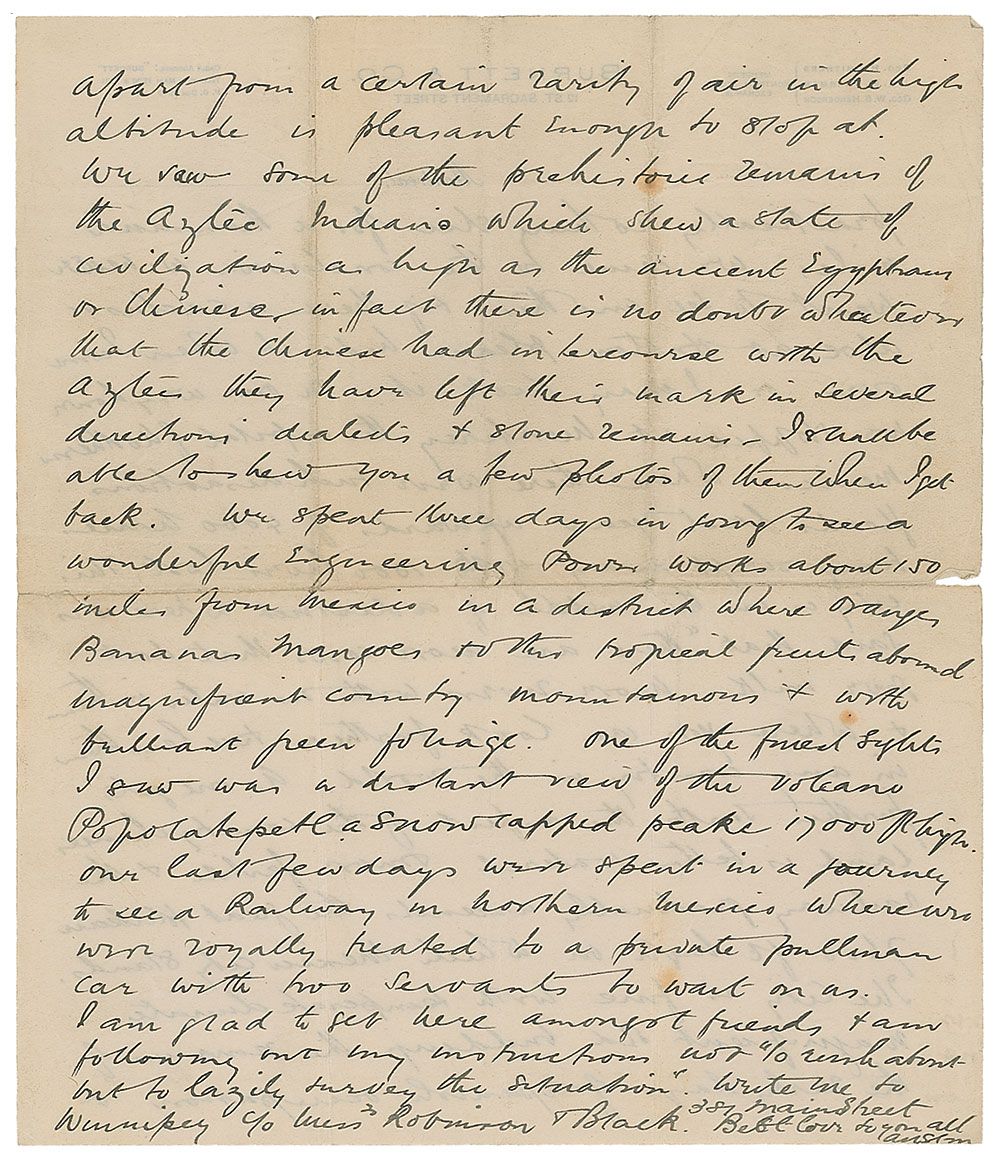 apart from a certain rarity of air in the high
altitude is pleasant enough to stop at.
We saw some of the prehistoric remains of
the Aztec Indians which shew a state of
civilization as high as the ancient Egyptians
or Chinese, in fact there is no doubt whatever
that the Chinese had intercourse with the
Aztecs they have left their mark in several
directions dialects & stone remains - I shall be
able to shew you a few photos of them when I get
back. We spent three days in going to see a
wonderful Engineering Power works about 150
miles from Mexico in a district where oranges
Bananas Mangoes & other tropical fruits abound
magnificent country mountainous & with
brilliant green foliage. One of the finest sights
I saw was a distant view of the Volcano
Popolatepetl a snow capped peake 17000 ft high.
our last few days were spent in a journey
to see a Railway in Northern Mexico where we
were royally treated to a private pullman
car with two servants to wait on us.
I am glad to get here amongst friends & am
following out my instructions not "to rush about
but to lazily survey the situation". Write me to
Winnipeg c/o Messrs Robinson & Black. 381 Main Street
Best love to you all
Austin
BURPETT & CO
SACRAMENT STREET